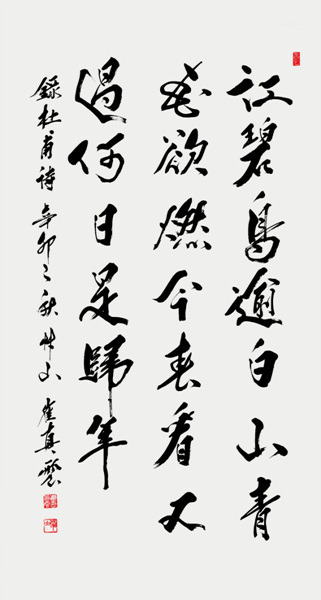 江碧鳥逾白山青
花欲燃今春看又
過何日是歸年
錄杜甫詩 辛卯之秋 崔真